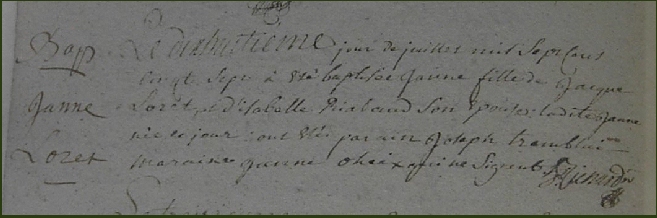 Bap
Janne
Loret
Le dixhuitieme jour de juillet mil Sept Cens
vingt Sept à été baptisée Janne fille de Jacque
Loret et d'isabelle Riabaud Son épouse ladite Janne
née ce jour ont été parain Joseph tremblai
maraine Janne qui ne Signent Richard